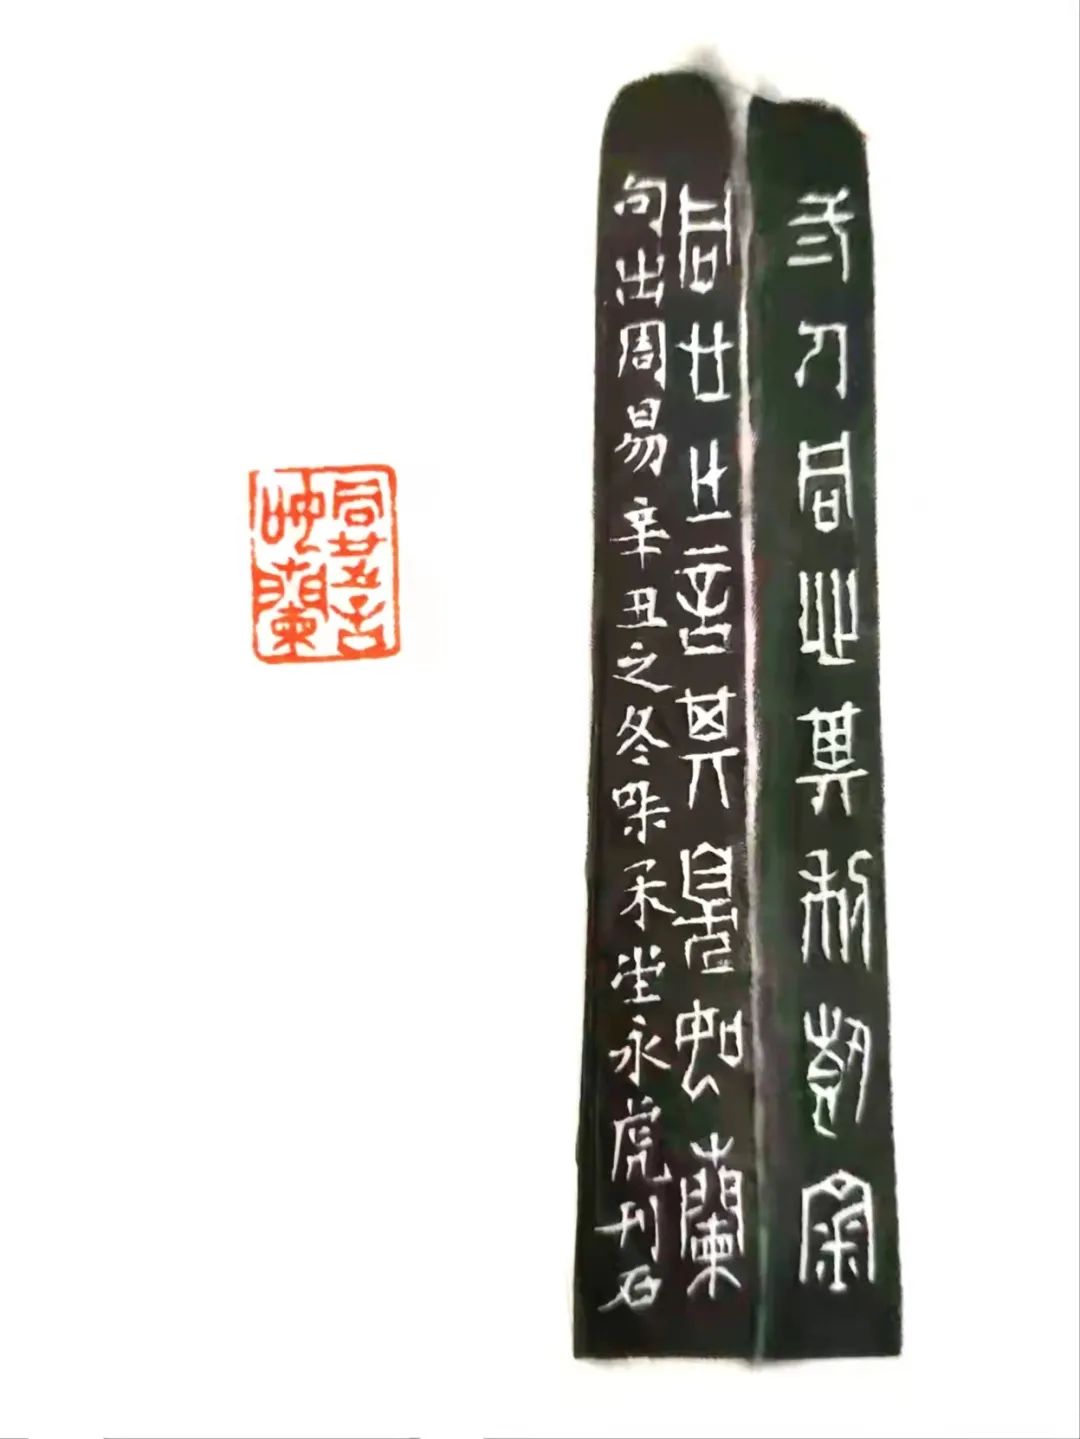 二人同心其利斷金
同心之言其臭如蘭
句出周易辛丑之冬味堂永虎刊石
同心之言
如蘭